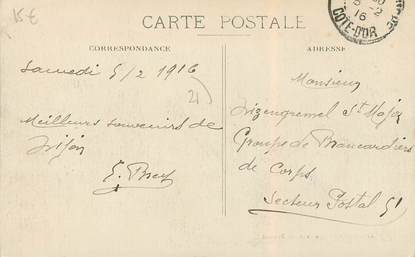 15€
CARTE POSTALE
CORRESPONDANCE
ADRESSE
5-2
16
COTE-D'OR
Samedi 5/2 1916
21
Meilleurs souvenirs de
Dijon
Monsieur
St Major
Groupe de Brancardiers
de Corps
Secteur Postal 51